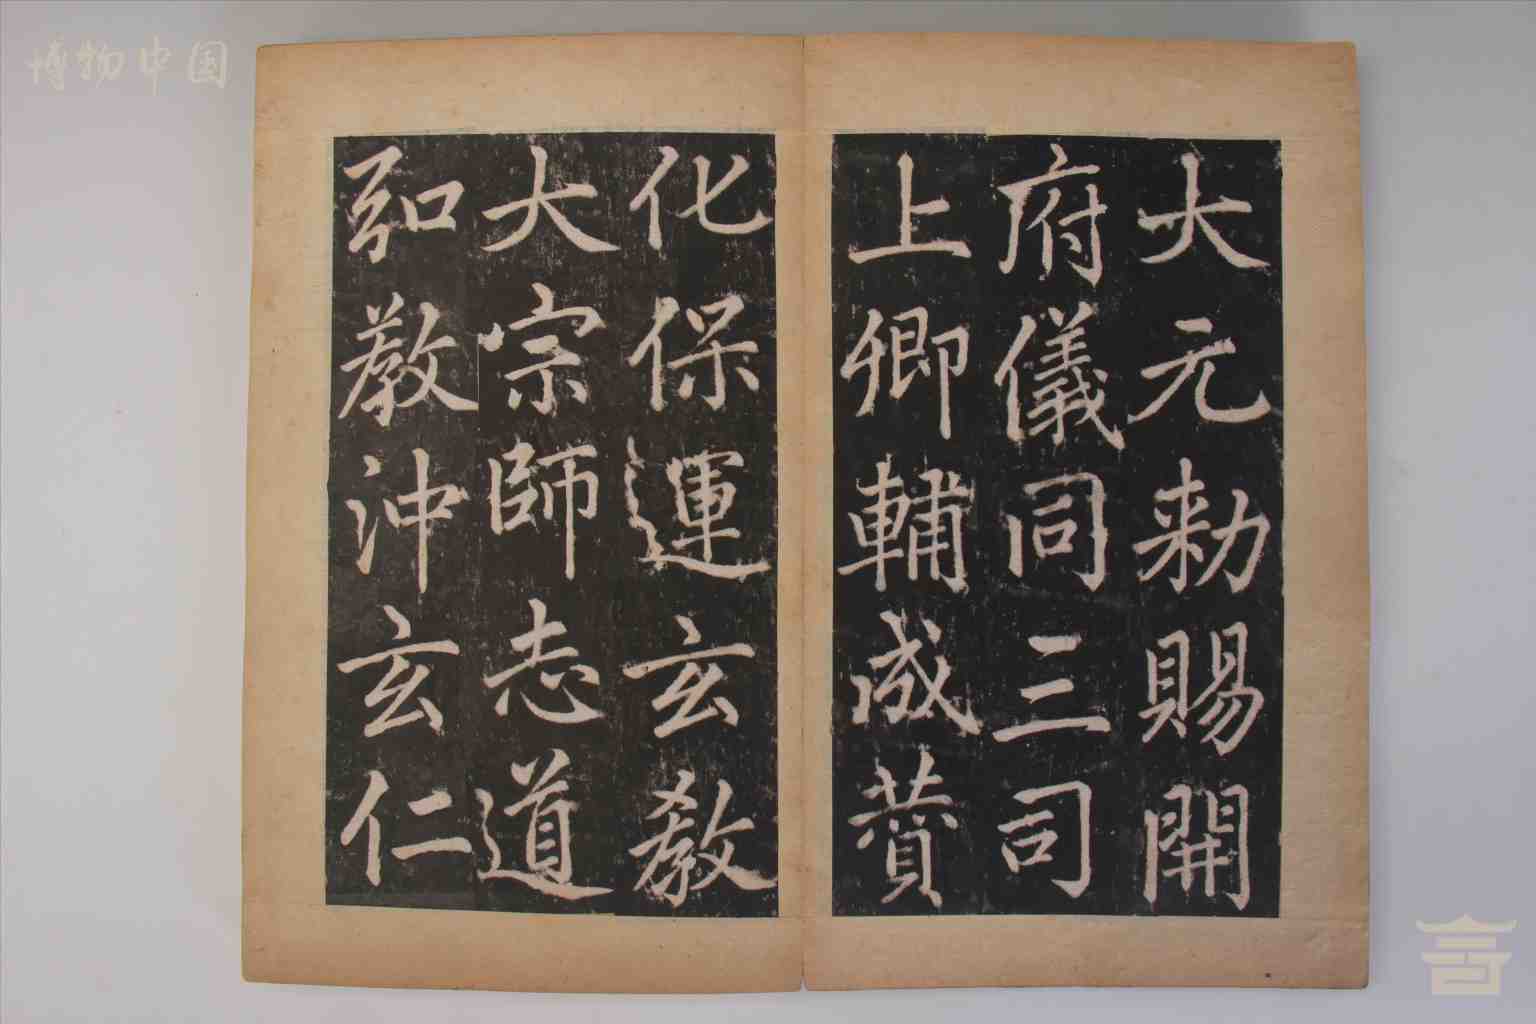 大元勑賜開
府儀同三司
上卿輔成贊
化保運玄教
大宗師志道
弘教沖玄仁
博物中国